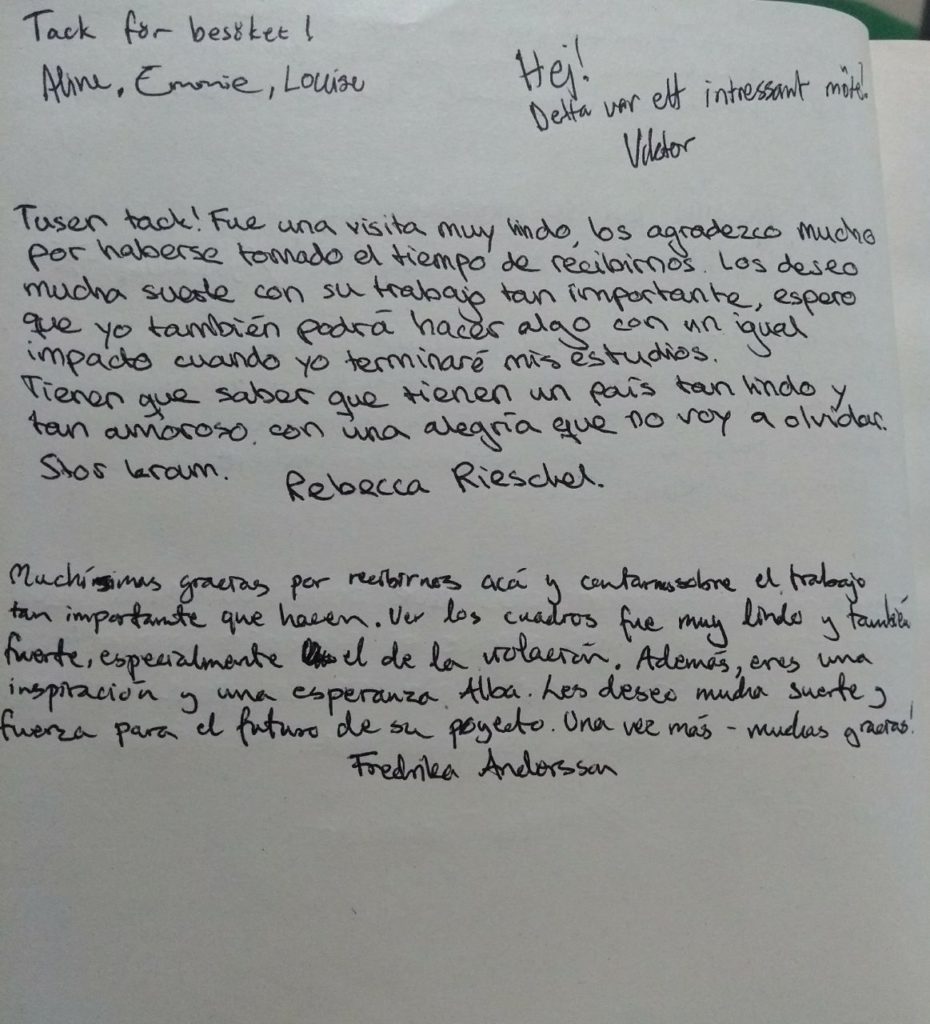 Tack för besöket!
Aline, Emmie, Louise
Hej!
Detta var ett intressant möte!
Viktor
Tusen tack! Fue una visita muy lindo, los agradezco mucho
por haberse tomado el tiempo de recibirnos. Los deseo
mucha suerte con su trabajo tan importante, espero
que yo también podrá hacer algo con un igual
impacto cuando yo terminaré mis estudios.
Tienen que saber que tienen un país tan lindo y
tan amoroso. con una alegría que no voy a olvidar.
Stor kram.
Rebecca Rieschel.
Muchísimas gracias por recibirnos acá y contarnos sobre el trabajo
tan importante que hacen. Ver los cuadros fue muy lindo y también
fuerte, especialmente el de la violación. Además, eres una
inspiración y una esperanza. Alba. Les deseo mucha suerte y
fuerza para el futuro de su poyecto. Una vez más - muchas gracias!
Fredrika Andersson